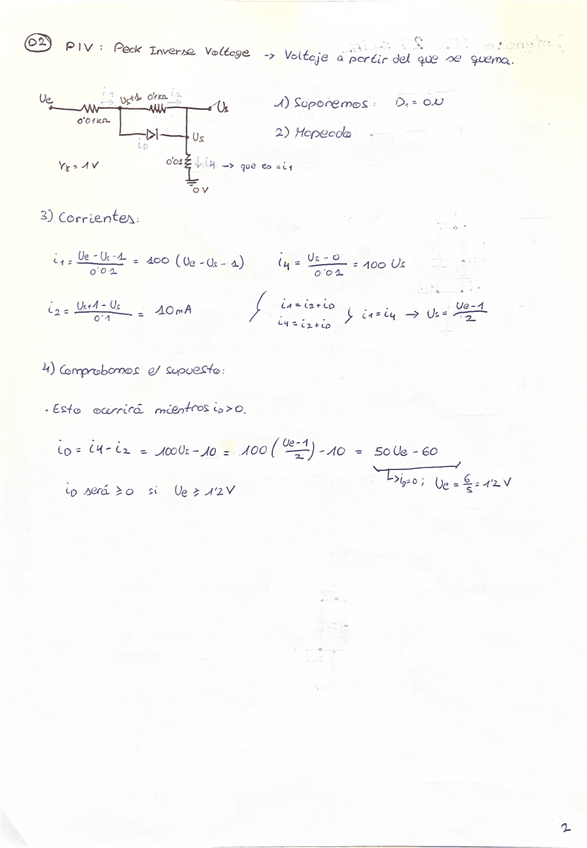 D2 PIV: Peak Inverse Voltage → Voltaje a partir del que se quema.
Ue i1 Us+1 0'1KΩ i2 Us
0'01KΩ
iD Us
0'01 i4 → que es = i1
Vγ = 1V
0V
1) Suponemos: D1 = ON
2) Mapeado
3) Corrientes:
i1 = (Ue - Us - 1)/0'01 = 100 (Ue - Us - 1) i4 = (Us - 0)/0'01 = 100 Us
i2 = (Us+1 - Us)/0'1 = 10mA { i1 = i2+iD i4 = i2+iD } i1 = i4 → Us = (Ue-1)/2
4) Comprobamos el supuesto:
· Esto ocurrirá mientras iD > 0.
iD = i4 - i2 = 100Us - 10 = 100 ((Ue-1)/2) - 10 = 50Ue - 60
↳ iD=0; Ue = 6/5 = 1'2 V
iD será ≥ 0 si Ue ≥ 1'2V
2